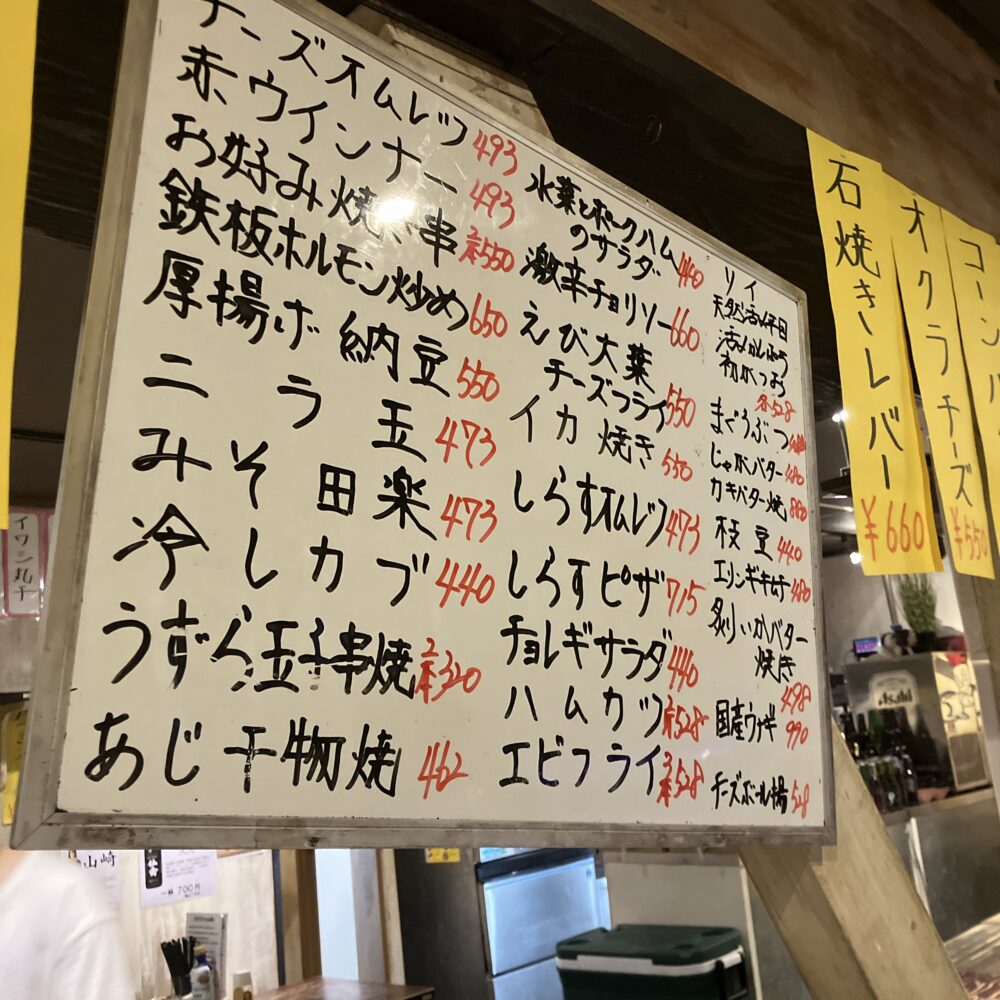 チーズオムレツ 493
赤ウインナー 493
お好み焼き串 2本550
鉄板ホルモン炒め 650
厚揚げ納豆 550
ニラ玉 473
みそ田楽 473
冷しカブ 440
うずら玉子串焼 2本320
あじ干物焼 462
水菜とポークハム
のサラダ 440
激辛チョリソー 660
えび大葉
チーズフライ 550
イカ焼き 550
しらすオムレツ 473
しらすピザ 715
チョレギサラダ 440
ハムカツ 2本528
エビフライ 3本528
ソイ
天然活〆平目
初がつお
各528
まぐろぶつ
じゃがバター 480
カキバター焼 880
枝豆 440
エリンギキムチ 480
炙りいかバター
焼き 498
国産ウナギ 990
チーズボール揚 528
石焼きレバー ¥660
オクラチーズ ¥550
コーンバ
イワシ丸干
山崎
700円
Asahi